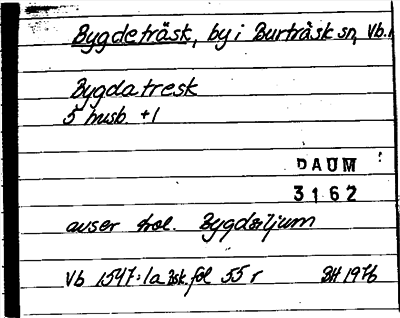 Bygdeträsk, by i Burträsk sn, Vb.
Bygdatresk
5 husb. +1
DAUM
3162
avser trol. Bygdsiljum
Vb 1547:1a Bsk. fol 55 r BH 1976